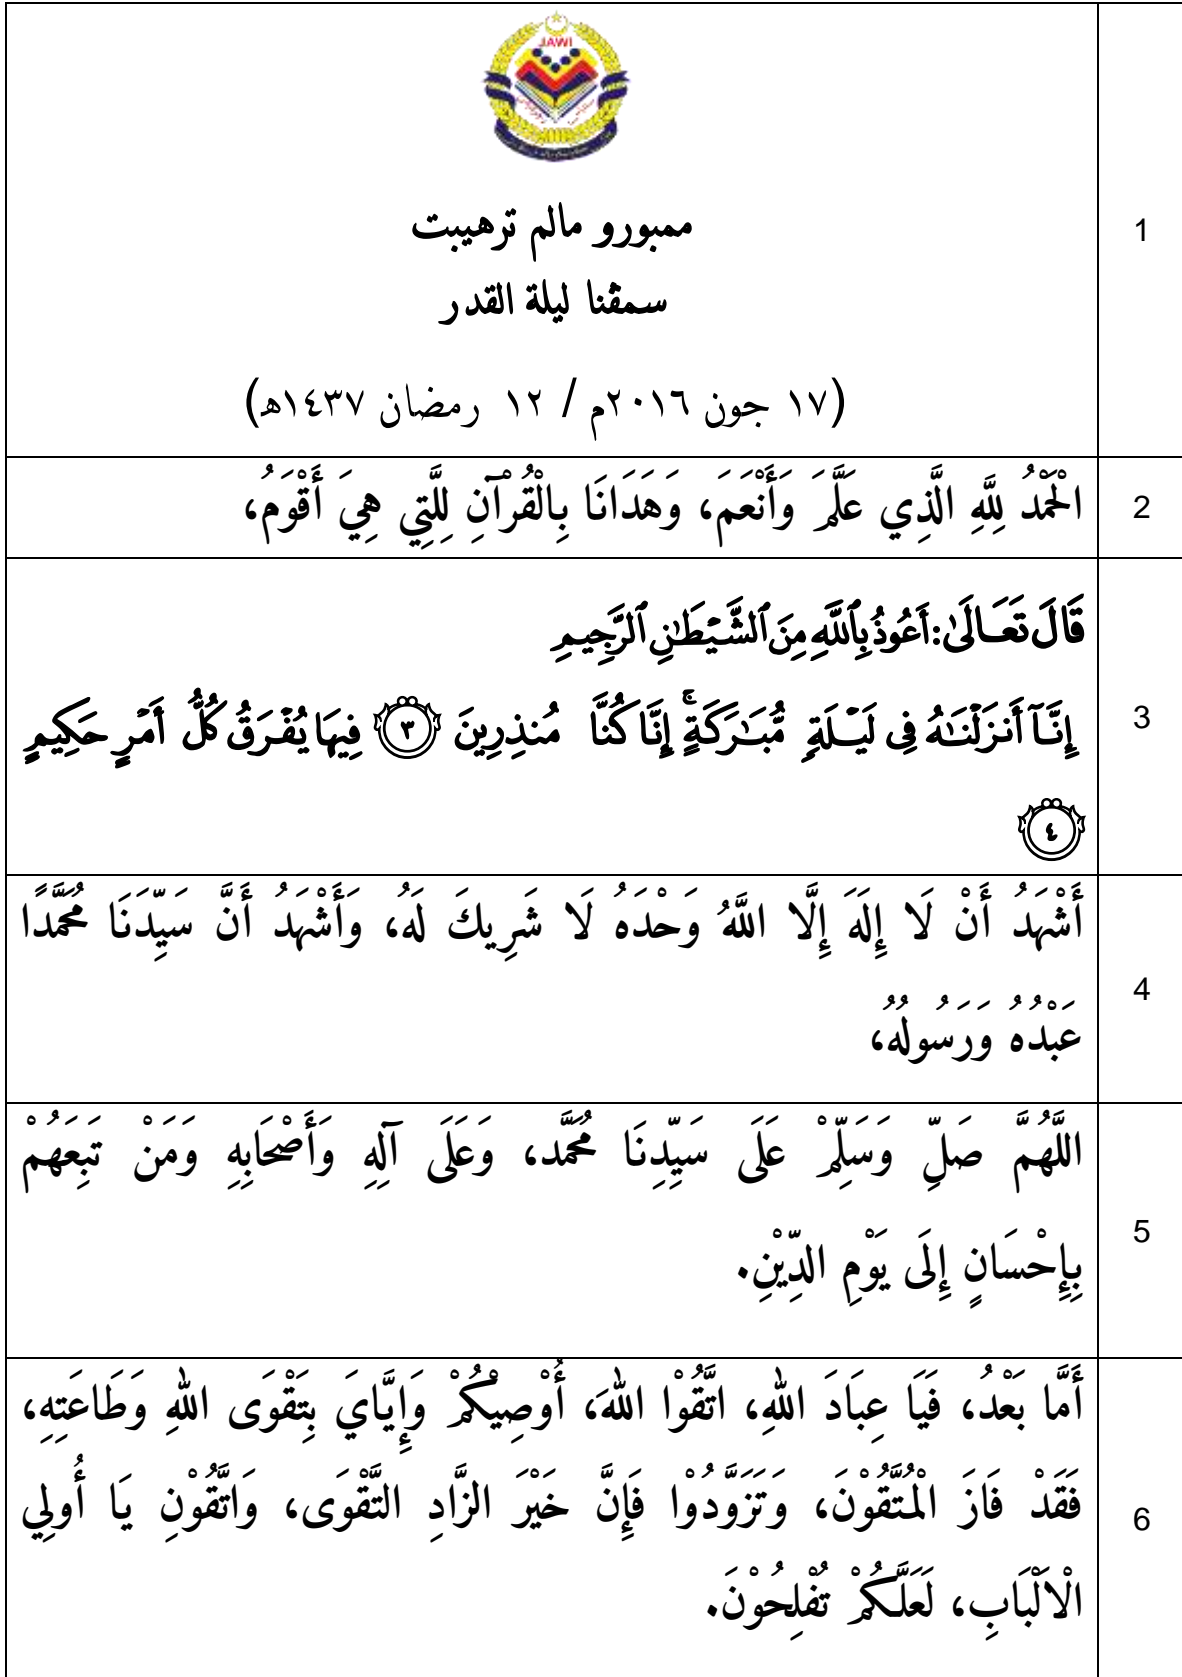 JAWI
ممبورو مالم ترهيبت
سمڤنا ليلة القدر
(١٧ جون ٢٠١٦م / ١٢ رمضان ١٤٣٧هـ)
1
الْحَمْدُ لِلَّهِ الَّذِي عَلَّمَ وَأَنْعَمَ، وَهَدَانَا بِالْقُرْآنِ لِلَّتِي هِيَ أَقْوَمُ،
2
قَالَ تَعَالَىٰ: أَعُوذُ بِٱللَّهِ مِنَ ٱلشَّيْطَٰنِ ٱلرَّجِيمِ
إِنَّآ أَنزَلْنَٰهُ فِى لَيْلَةٍ مُّبَٰرَكَةٍ ۚ إِنَّا كُنَّا مُنذِرِينَ ٣ فِيهَا يُفْرَقُ كُلُّ أَمْرٍ حَكِيمٍ
٤
3
أَشْهَدُ أَنْ لَا إِلَهَ إِلَّا اللَّهُ وَحْدَهُ لَا شَرِيكَ لَهُ، وَأَشْهَدُ أَنَّ سَيِّدَنَا مُحَمَّدًا
عَبْدُهُ وَرَسُولُهُ،
4
اللَّهُمَّ صَلِّ وَسَلِّمْ عَلَى سَيِّدِنَا مُحَمَّد، وَعَلَى آلِهِ وَأَصْحَابِهِ وَمَنْ تَبِعَهُمْ
بِإِحْسَانٍ إِلَى يَوْمِ الدِّيْنِ.
5
أَمَّا بَعْدُ، فَيَا عِبَادَ اللهِ، اتَّقُوْا اللهَ، أُوْصِيْكُمْ وَإِيَّايَ بِتَقْوَى اللهِ وَطَاعَتِهِ،
فَقَدْ فَازَ الْمُتَّقُوْنَ، وَتَزَوَّدُوْا فَإِنَّ خَيْرَ الزَّادِ التَّقْوَى، وَاتَّقُوْنِ يَا أُولِي
الْاَلْبَابِ، لَعَلَّكُمْ تُفْلِحُوْنَ.
6